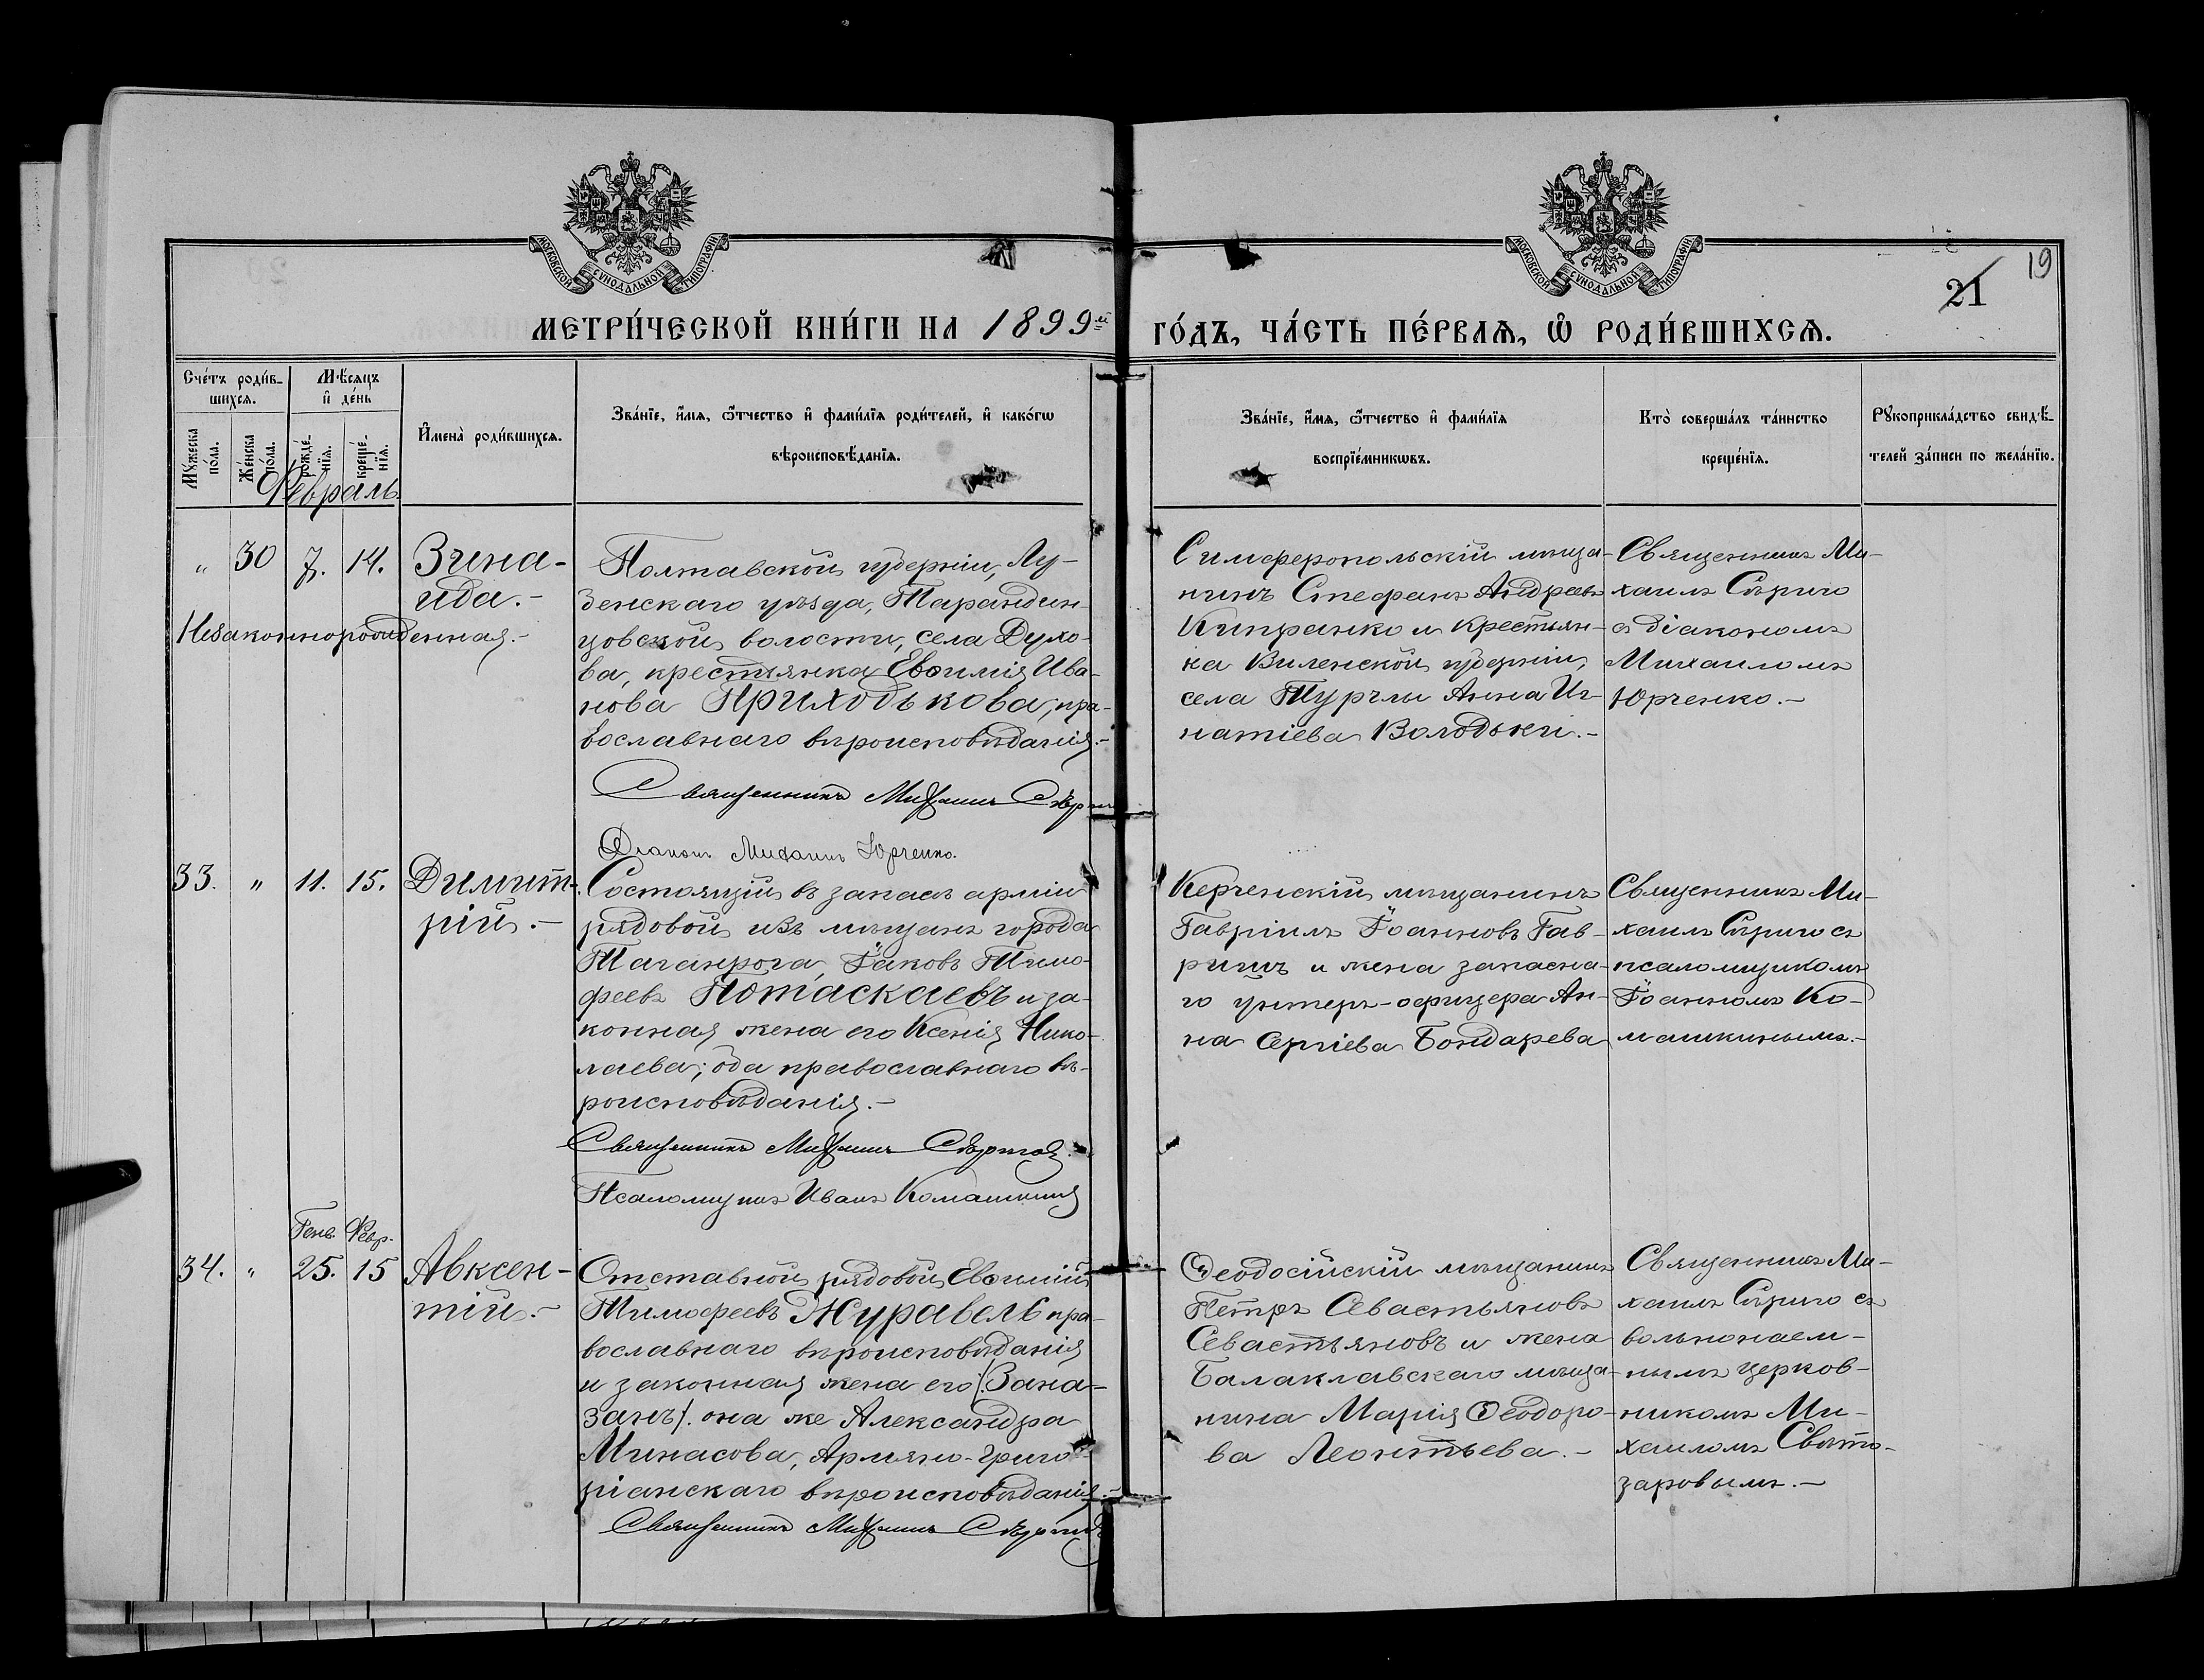 МОСКОВСКОЙ СѴНОДАЛЬНОЙ ТИПОГРАФІИ
МОСКОВСКОЙ СѴНОДАЛЬНОЙ ТИПОГРАФІИ
19
21
МЕТРИ́ЧЕСКОЙ КНИ́ГИ НА 1899й ГО́ДЪ, ЧА́СТЬ ПЕ́РВАѦ, Ѡ҆ РОДИ́ВШИХСѦ.
Сче́тъ роди́в-
шихсѧ.
Мѣ́сѧцъ
и҆ де́нь
Мꙋ́жеска
по́ла.
Же́нска
по́ла.
рожде́-
нїѧ.
креще́-
нїѧ.
И҆мена̀ роди́вшихсѧ.
Зва́нїе, и҆́мѧ, ѻ҆́тчество и҆ фами́лїѧ роди́телей, и҆ како́гѡ
вѣроисповѣ́данїѧ.
Зва́нїе, и҆́мѧ, ѻ҆́тчество и҆ фами́лїѧ
воспрїе́мникѡвъ.
Кто̀ соверша́лъ та́инство
креще́нїѧ.
Рꙋкоприкла́дство свидѣ́-
телей за́писи по жела́нїю.
Февраль
" 30 7. 14. Зина-
ида.-
Незаконнорожденная.-
Полтавской губерніи, Лу-
бенскаго уѣзда, Тарандин-
цовской волости, села Духо-
ва, крестьянка Евѳимія Ива-
нова Приходькова, пра-
вославнаго вѣроисповѣданія.-
Священникъ Михаилъ Сѣри
Діаконъ Михаилъ Юрченко.
Симферопольскій мѣща-
нинъ Стефанъ Андреевъ
Кипранко и крестьян-
ка Виленской губерніи,
села Турглы Анна Иг-
натіева Володьки.-
Священникъ Ми-
хаилъ Сѣриго
съ діакономъ
Михаиломъ
Юрченко.-
33. " 11. 15. Димит-
рій.-
Состоящій въ запасѣ арміи
рядовой изъ мѣщанъ города
Таганрога, Іаковъ Тимо-
феевъ Потаскаевъ и за-
конная жена его Ксенія Нико-
лаева; оба православнаго вѣ-
роисповѣданія.-
Священникъ Михаилъ Сѣриго
Псаломщикъ Иванъ Комашкинъ
Керченскій мѣщанинъ
Гавріилъ Іоанновъ Гав-
ришъ и жена запасна-
го унтеръ-офицера Ан-
на Сергіева Бондарева
Священникъ Ми-
хаилъ Сѣриго съ
псаломщикомъ
Іоанномъ Ко-
машкинымъ.-
Генв. Февр.
34. " 25. 15 Авксен-
тій.-
Отставной рядовой Евѳимій
Тимофеевъ Журавель пра-
вославнаго вѣроисповѣданія
и законная жена его (Зана-
занъ). она же Александра
Минасова, Армяно-Григо-
ріанскаго вѣроисповѣданія.-
Священникъ Михаилъ Сѣриго
Ѳеодосійскій мѣщанинъ
Петръ Севастьяновъ
Севастьяновъ и жена
Балаклавскаго мѣща-
нина Марія Ѳеодоро-
ва Леонтьева.-
Священникъ Ми-
хаилъ Сѣриго съ
вольнонаем-
нымъ церков-
никомъ Ми-
хаиломъ Свѣто-
заровымъ.-